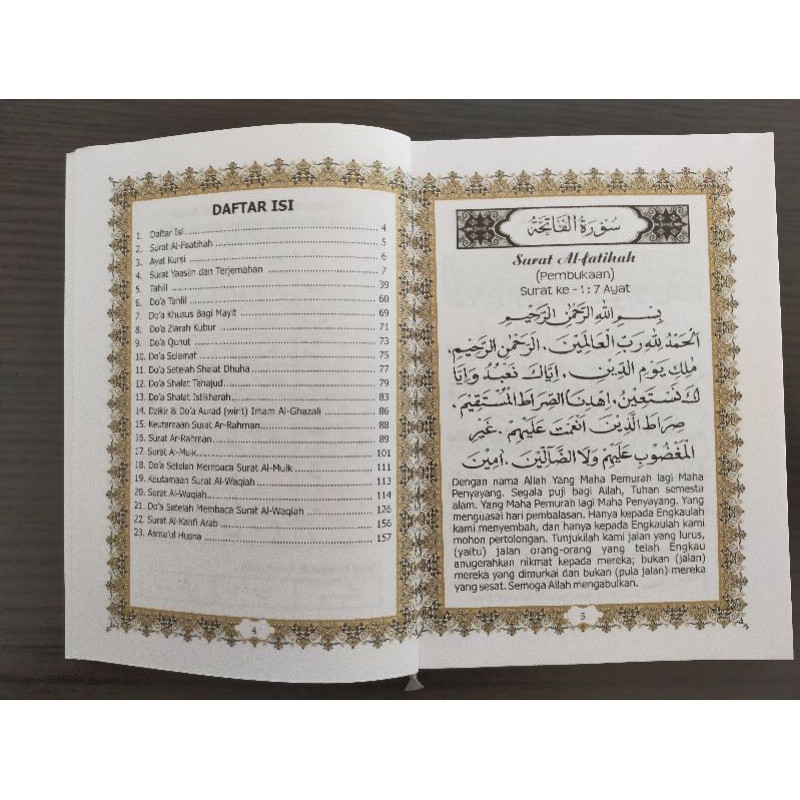 DAFTAR ISI
1. Daftar Isi 4
2. Surat Al-Faatihah 5
3. Ayat Kursi 6
4. Surat Yaasiin dan Terjemahan 7
5. Tahlil 39
6. Do'a Tahlil 60
7. Do'a Khusus Bagi Mayit 69
8. Do'a Ziarah Kubur 71
9. Do'a Qunut 73
10. Do'a Selamat 75
11. Do'a Setelah Shalat Dhuha 77
12. Do'a Shalat Tahajud 79
13. Do'a Shalat Istikharah 83
14. Dzikir & Do'a Aurad (wirit) Imam Al-Ghazali 86
15. Keutamaan Surat Ar-Rahman 88
16. Surat Ar-Rahman 89
17. Surat Al-Mulk 101
18. Do'a Setelah Membaca Surat Al-Mulk 111
19. Keutamaan Surat Al-Waqiah 113
20. Surat Al-Waqiah 114
21. Do'a Setelah Membaca Surat Al-Waqlah 126
22. Surat Al-Kahfi Arab 156
23. Asma'ul Husna 157
4
سُوْرَةُ الْفَاتِحَةُ
Surat Al-fatihah
(Pembukaan)
Surat ke - 1 : 7 Ayat
بِسْمِ اللهِ الرَّحْمٰنِ الرَّحِيْمِ
اَلْحَمْدُ لِلّٰهِ رَبِّ الْعَالَمِيْنَ. الرَّحْمٰنِ الرَّحِيْمِ.
مٰلِكِ يَوْمِ الدِّيْنِ. اِيَّاكَ نَعْبُدُ وَاِيَّا
كَ نَسْتَعِيْنُ. اِهْدِنَا الصِّرَاطَ الْمُسْتَقِيْمَ.
صِرَاطَ الَّذِيْنَ اَنْعَمْتَ عَلَيْهِمْ. غَيْرِ
الْمَغْضُوْبِ عَلَيْهِمْ وَلَا الضَّآلِّيْنَ. اٰمِيْنَ
Dengan nama Allah Yang Maha Pemurah lagi Maha
Penyayang. Segala puji bagi Allah, Tuhan semesta
alam. Yang Maha Pemurah lagi Maha Penyayang. Yang
menguasai hari pembalasan. Hanya kepada Engkaulah
kami menyembah, dan hanya kepada Engkaulah kami
mohon pertolongan. Tunjukilah kami jalan yang lurus,
(yaitu) jalan orang-orang yang telah Engkau
anugerahkan nikmat kepada mereka; bukan (jalan)
mereka yang dimurkai dan bukan (pula jalan) mereka
yang sesat. Semoga Allah mengabulkan.
5